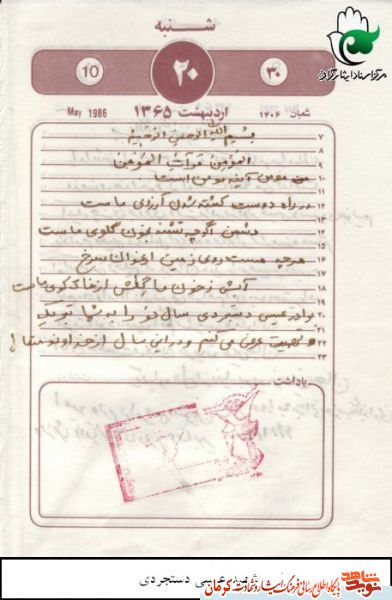 شنبه
مرکز اسناد ایثارگران
10
۲۰
۳۰
May 1986
اردیبهشت ۱۳۶۵
شعبان ۱۴۰۶
۷ بسم الله الرحمن الرحیم
۸
۹ المؤمن مرآت المؤمن
۱۰ من مومن آینه مومن است
۱۱
۱۲ در راه دوست کشته شدن آرزوی ماست
۱۳
۱۴ دشمن اگرچه تشنه بخون گلوی ماست
۱۵
۱۶ هرچه هست روی زمین ارغوان سرخ
۱۷
۱۸ آتش زخون ما گلش از خاک کوی ماست
۱۹
۲۰ برادر عیسی دستجردی سال نو را به شما تبریک
۲۱
۲۲ عرض می کنم و در این سال از خداوند
۲۳
یادداشت
عیسی دستجردی
نوید شاهد
پایگاه اطلاع رسانی فرهنگ ایثار و شهادت کرمان